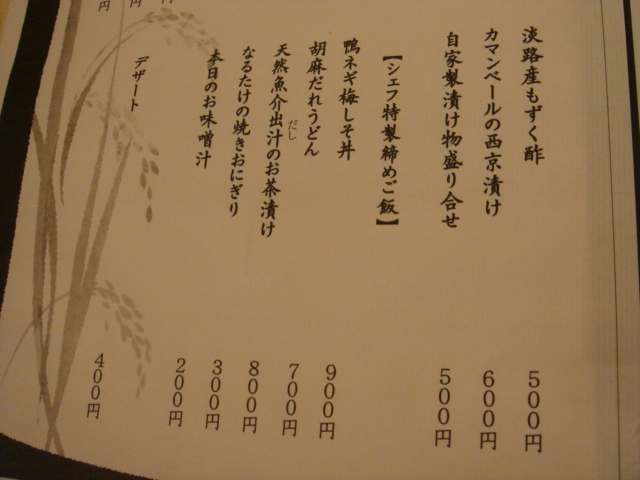 淡路産もずく酢 500円
カマンベールの西京漬け 600円
自家製漬け物盛り合せ 500円
【シェフ特製締めご飯】
鴨ネギ梅しそ丼 900円
胡麻だれうどん 700円
天然魚介出汁のお茶漬け 800円
だし
なるたけの焼きおにぎり 300円
本日のお味噌汁 200円
デザート 400円
円